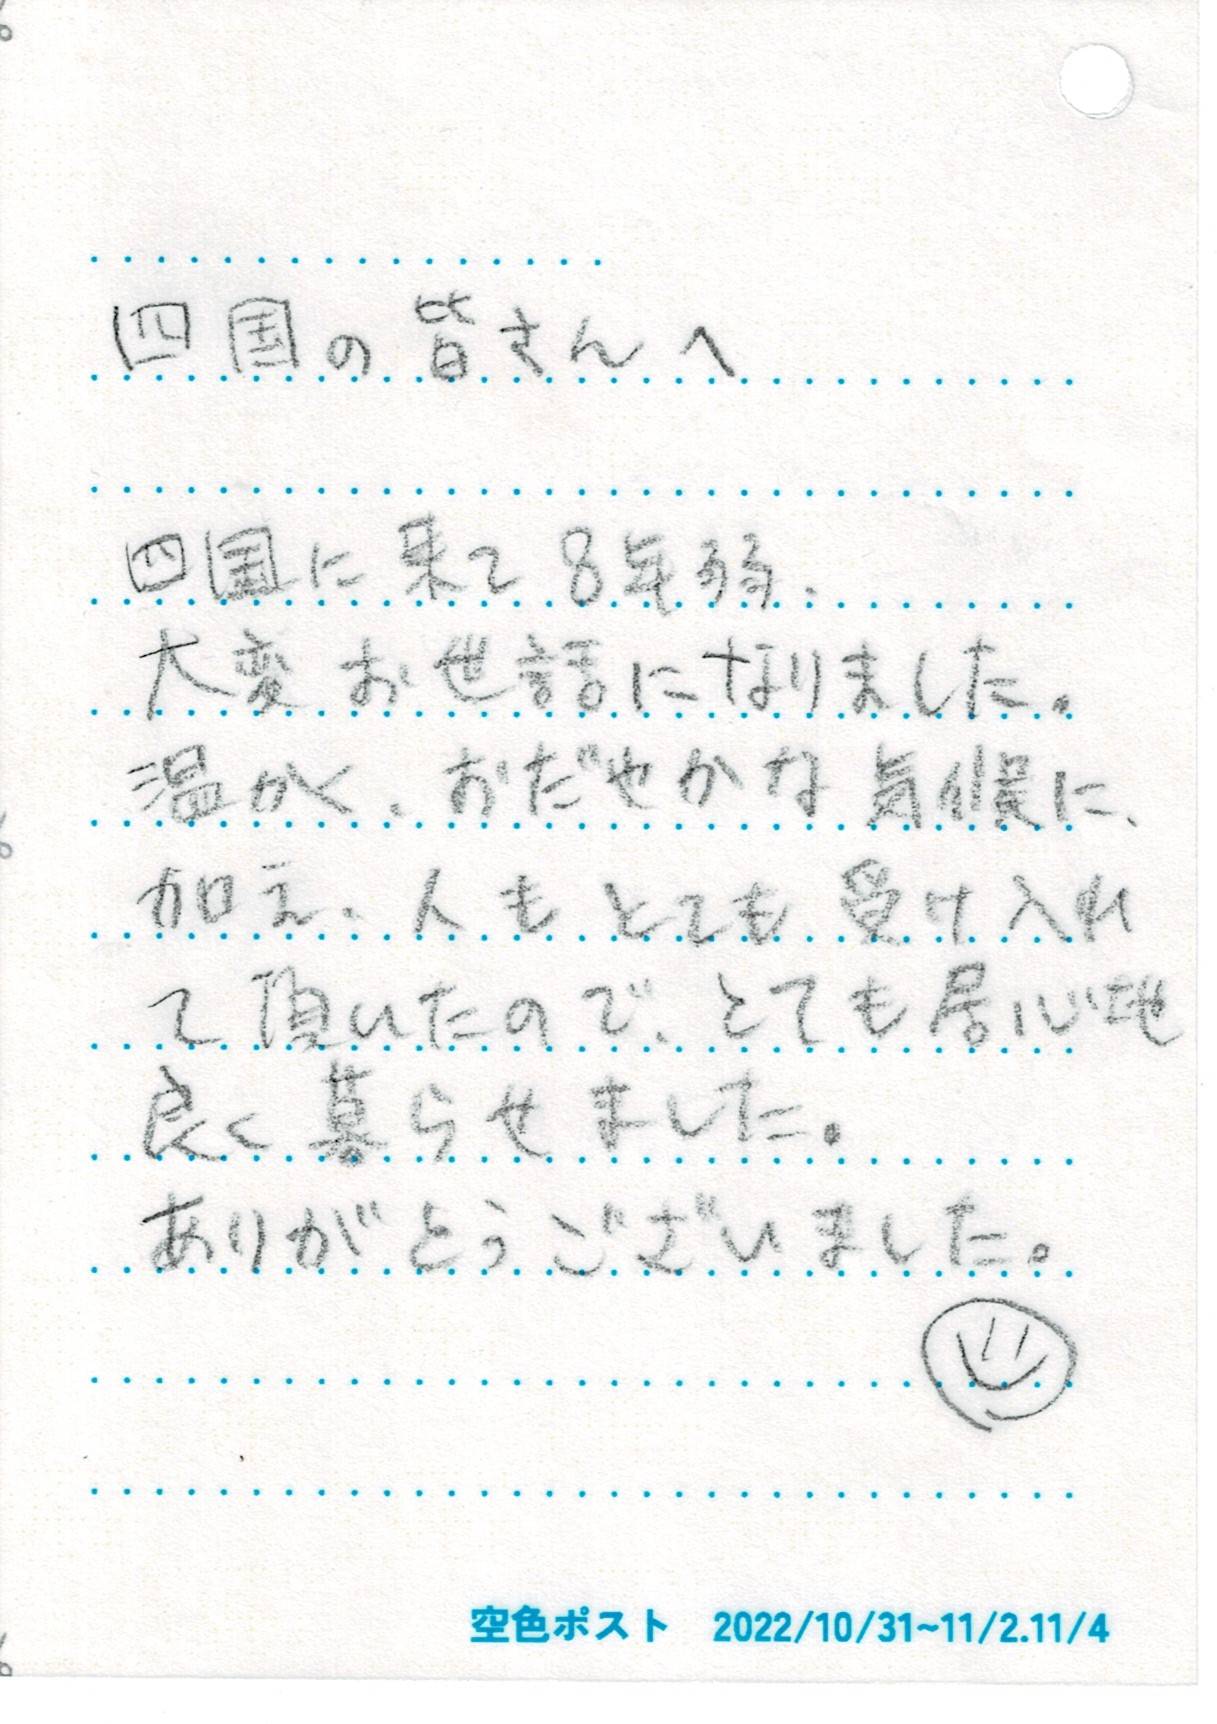 四国の皆さんへ
四国に来て8年弱、
大変お世話になりました。
温かく、おだやかな気候に、
加え、人もとても受け入れ
て頂いたので、とても居心地
良く暮らせました。
ありがとうございました。
空色ポスト 2022/10/31~11/2.11/4